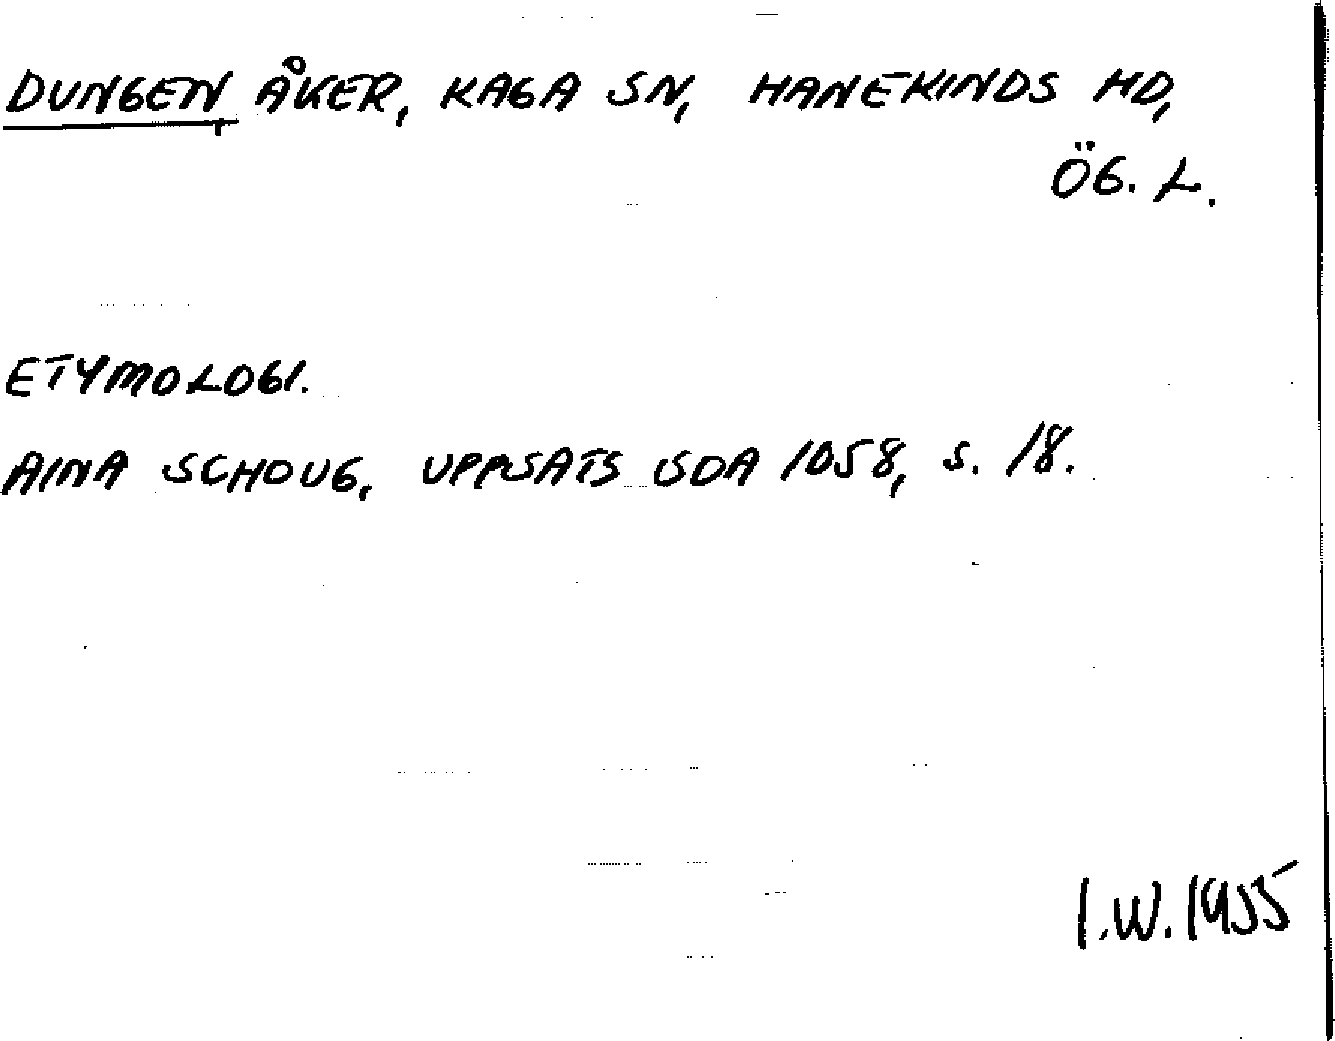 DUNGEN, ÅKER, KAGA SN, HANEKINDS HD,
ÖG. L.
ETYMOLOGI.
AINA SCHOUG, UPPSATS SOA 1058, S. 18.
I.W. 1955